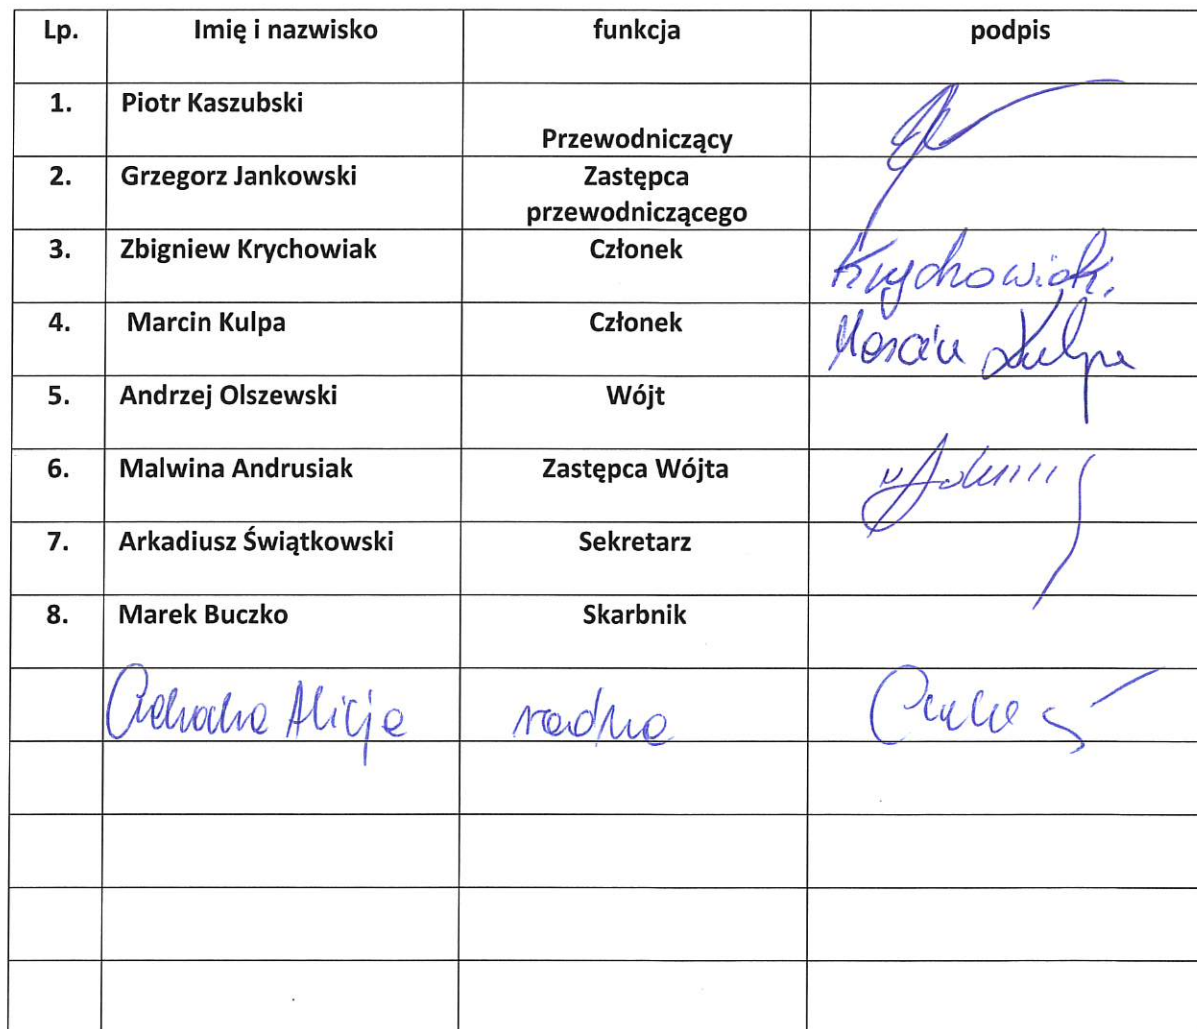 Lp. Imię i nazwisko funkcja podpis
1. Piotr Kaszubski
Przewodniczący
2. Grzegorz Jankowski Zastępca
przewodniczącego
3. Zbigniew Krychowiak Członek Krychowiak,
4. Marcin Kulpa Członek Marcin Kulpa
5. Andrzej Olszewski Wójt
6. Malwina Andrusiak Zastępca Wójta
7. Arkadiusz Świątkowski Sekretarz
8. Marek Buczko Skarbnik
Alicja radna